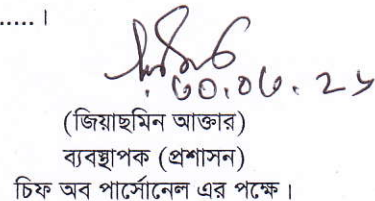 ..... ।
(জিয়াছমিন আক্তার)
ব্যবস্থাপক (প্রশাসন)
চিফ অব পার্সোনেল এর পক্ষে ।